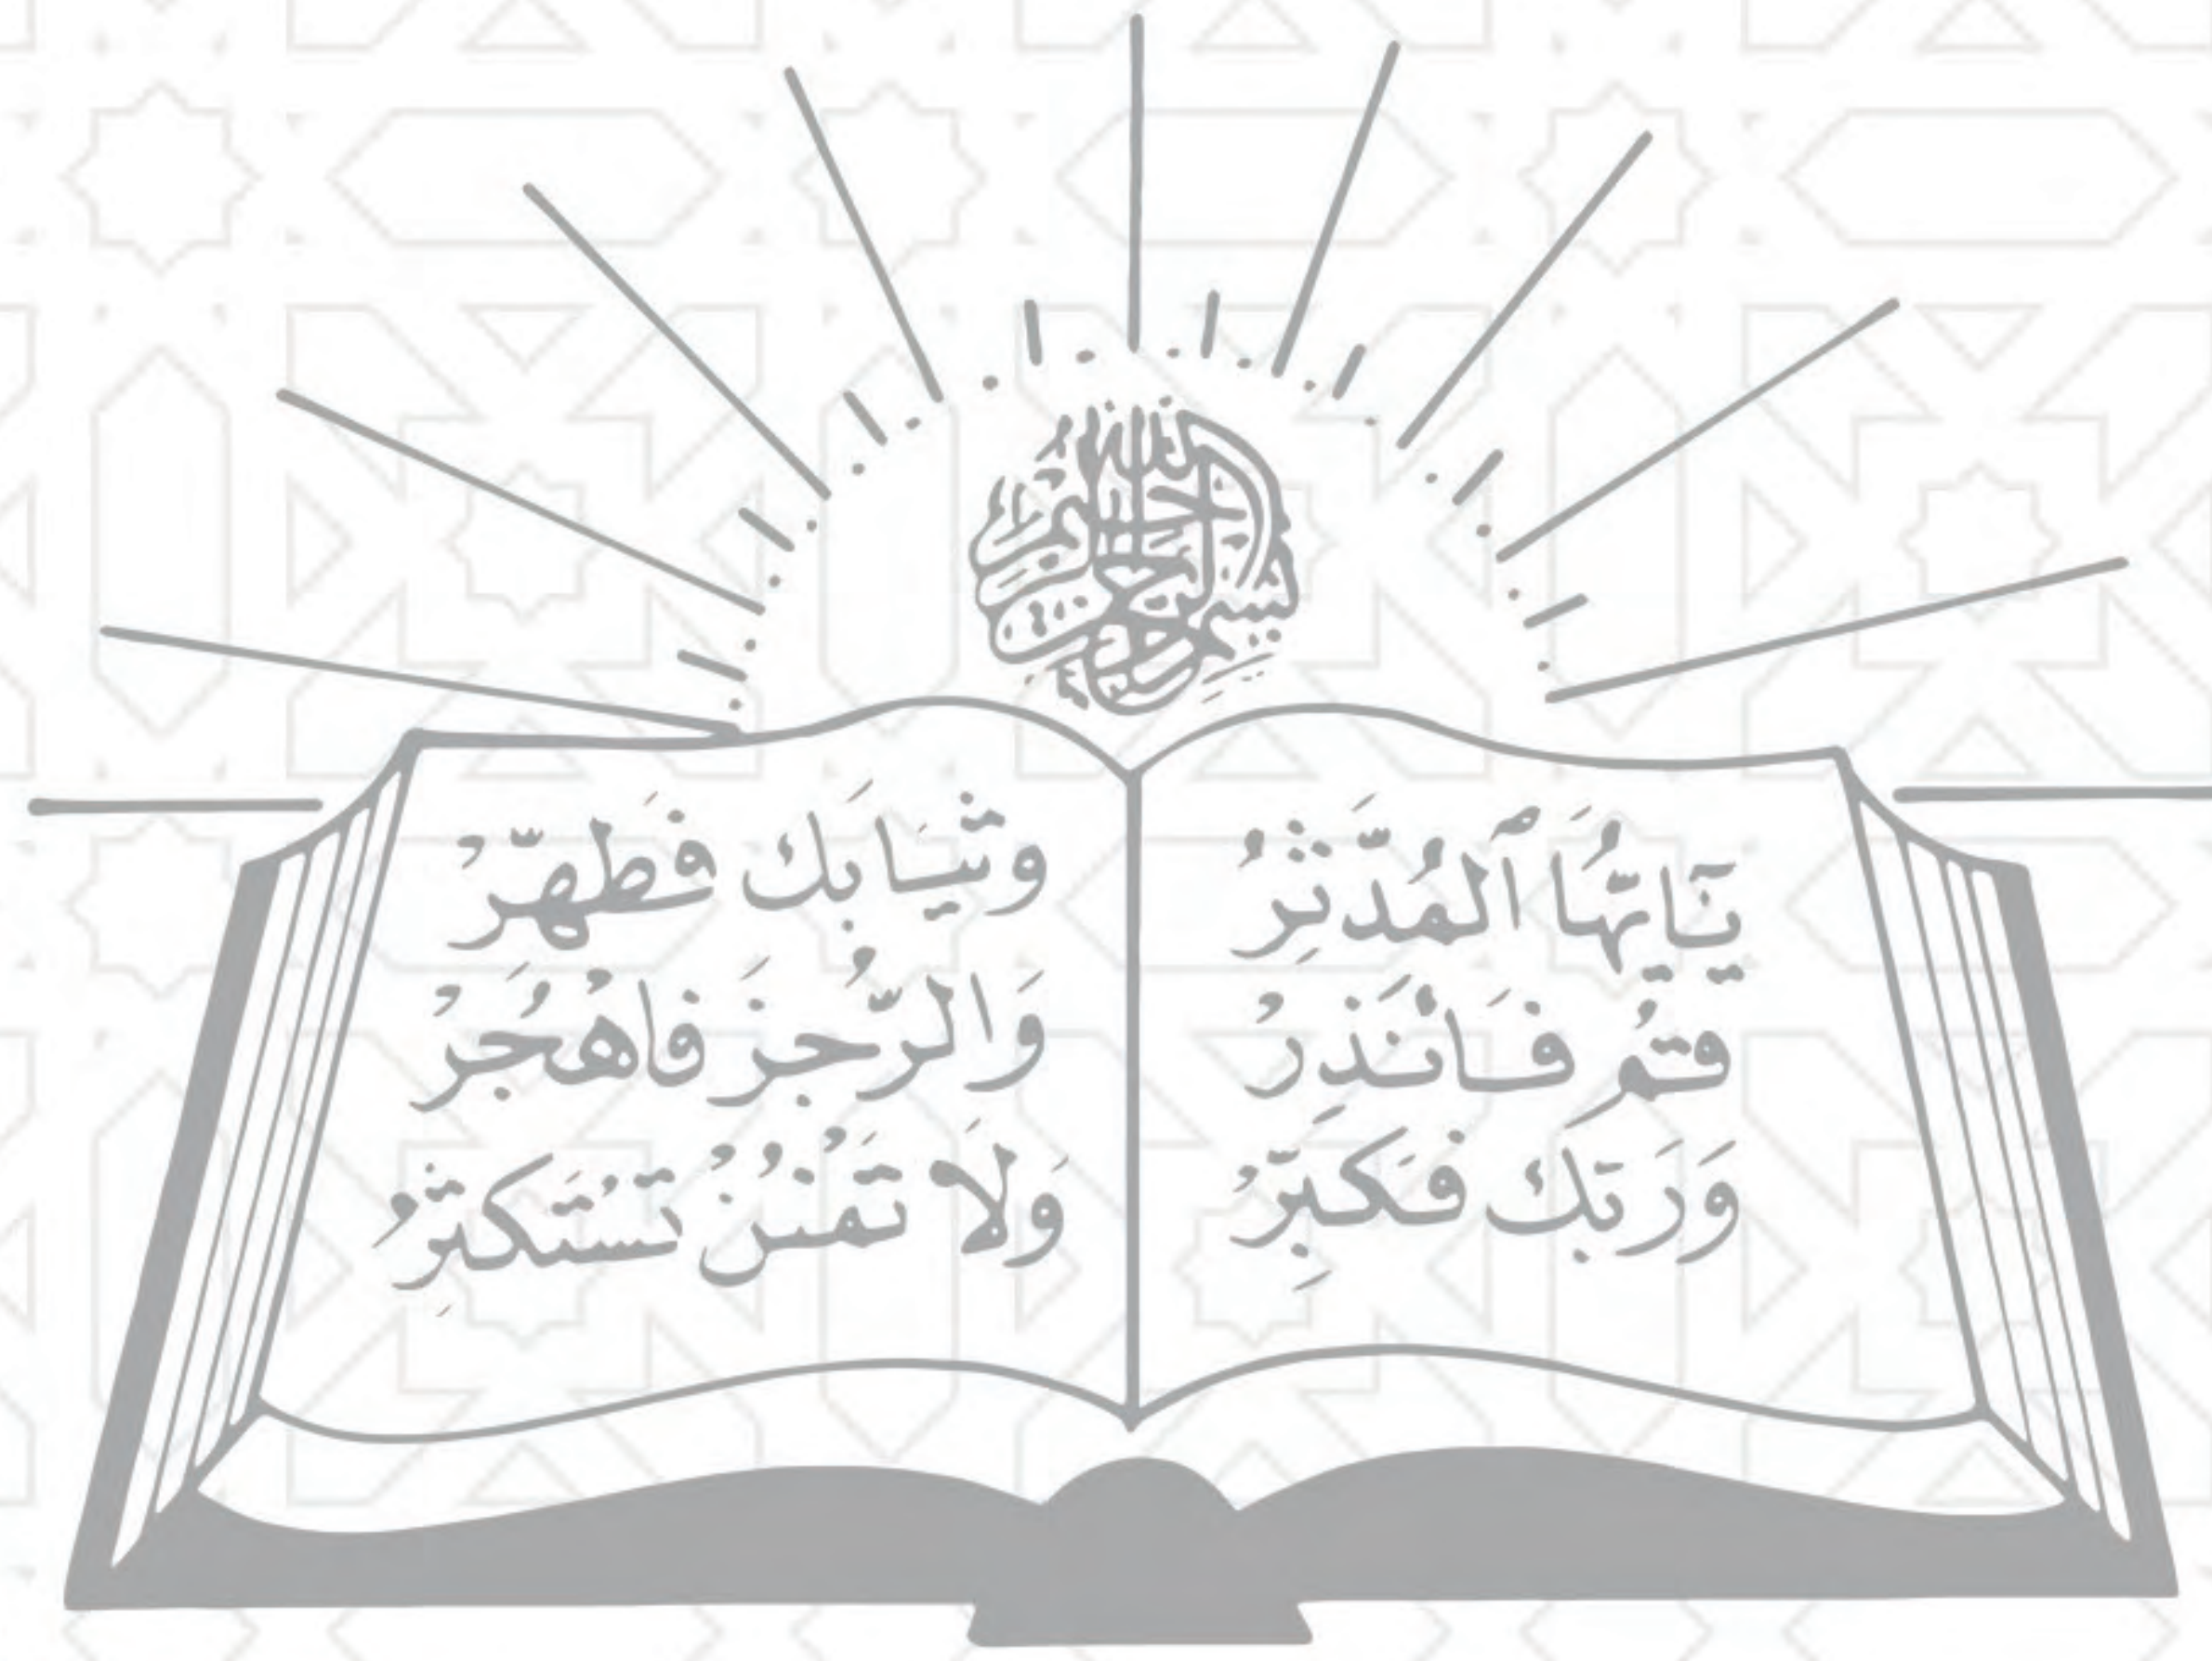 بسم الله الرحمن الرحيم
يَٰٓأَيُّهَا ٱلْمُدَّثِّرُ
قُمْ فَأَنْذِرْ
وَرَبَّكَ فَكَبِّرْ
وَثِيَابَكَ فَطَهِّرْ
وَالرُّجْزَ فَاهْجُرْ
وَلَا تَمْنُنْ تَسْتَكْثِرُ